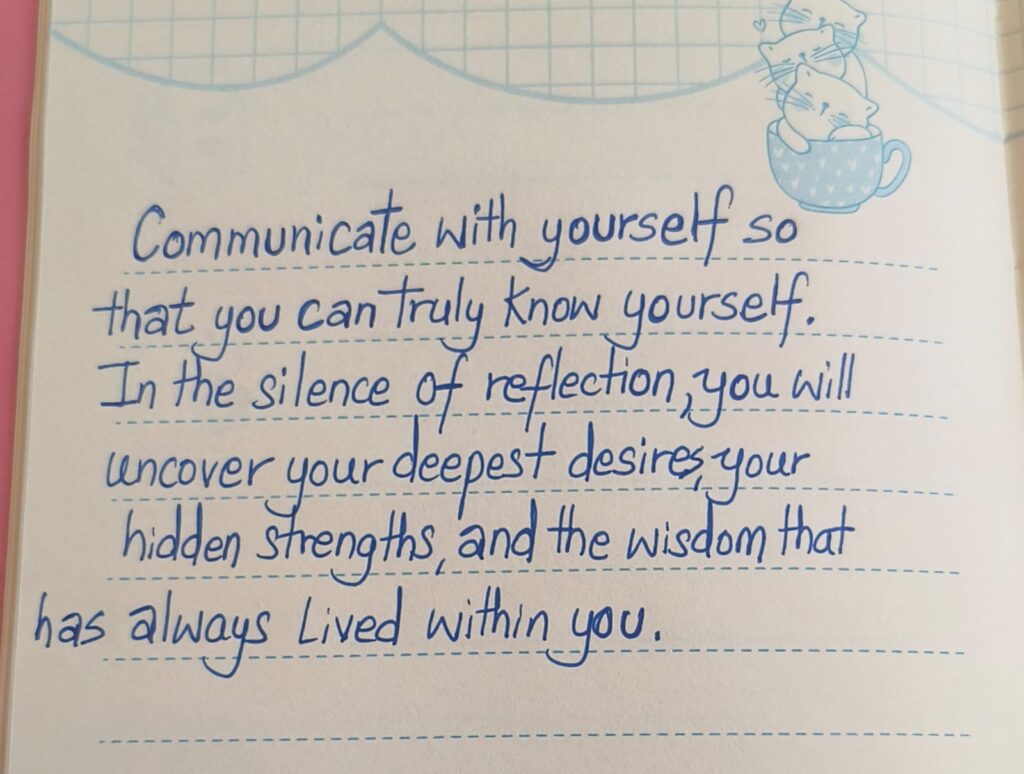 Communicate with yourself so
that you can truly know yourself.
In the silence of reflection, you will
uncover your deepest desires, your
hidden strengths, and the wisdom that
has always lived within you.